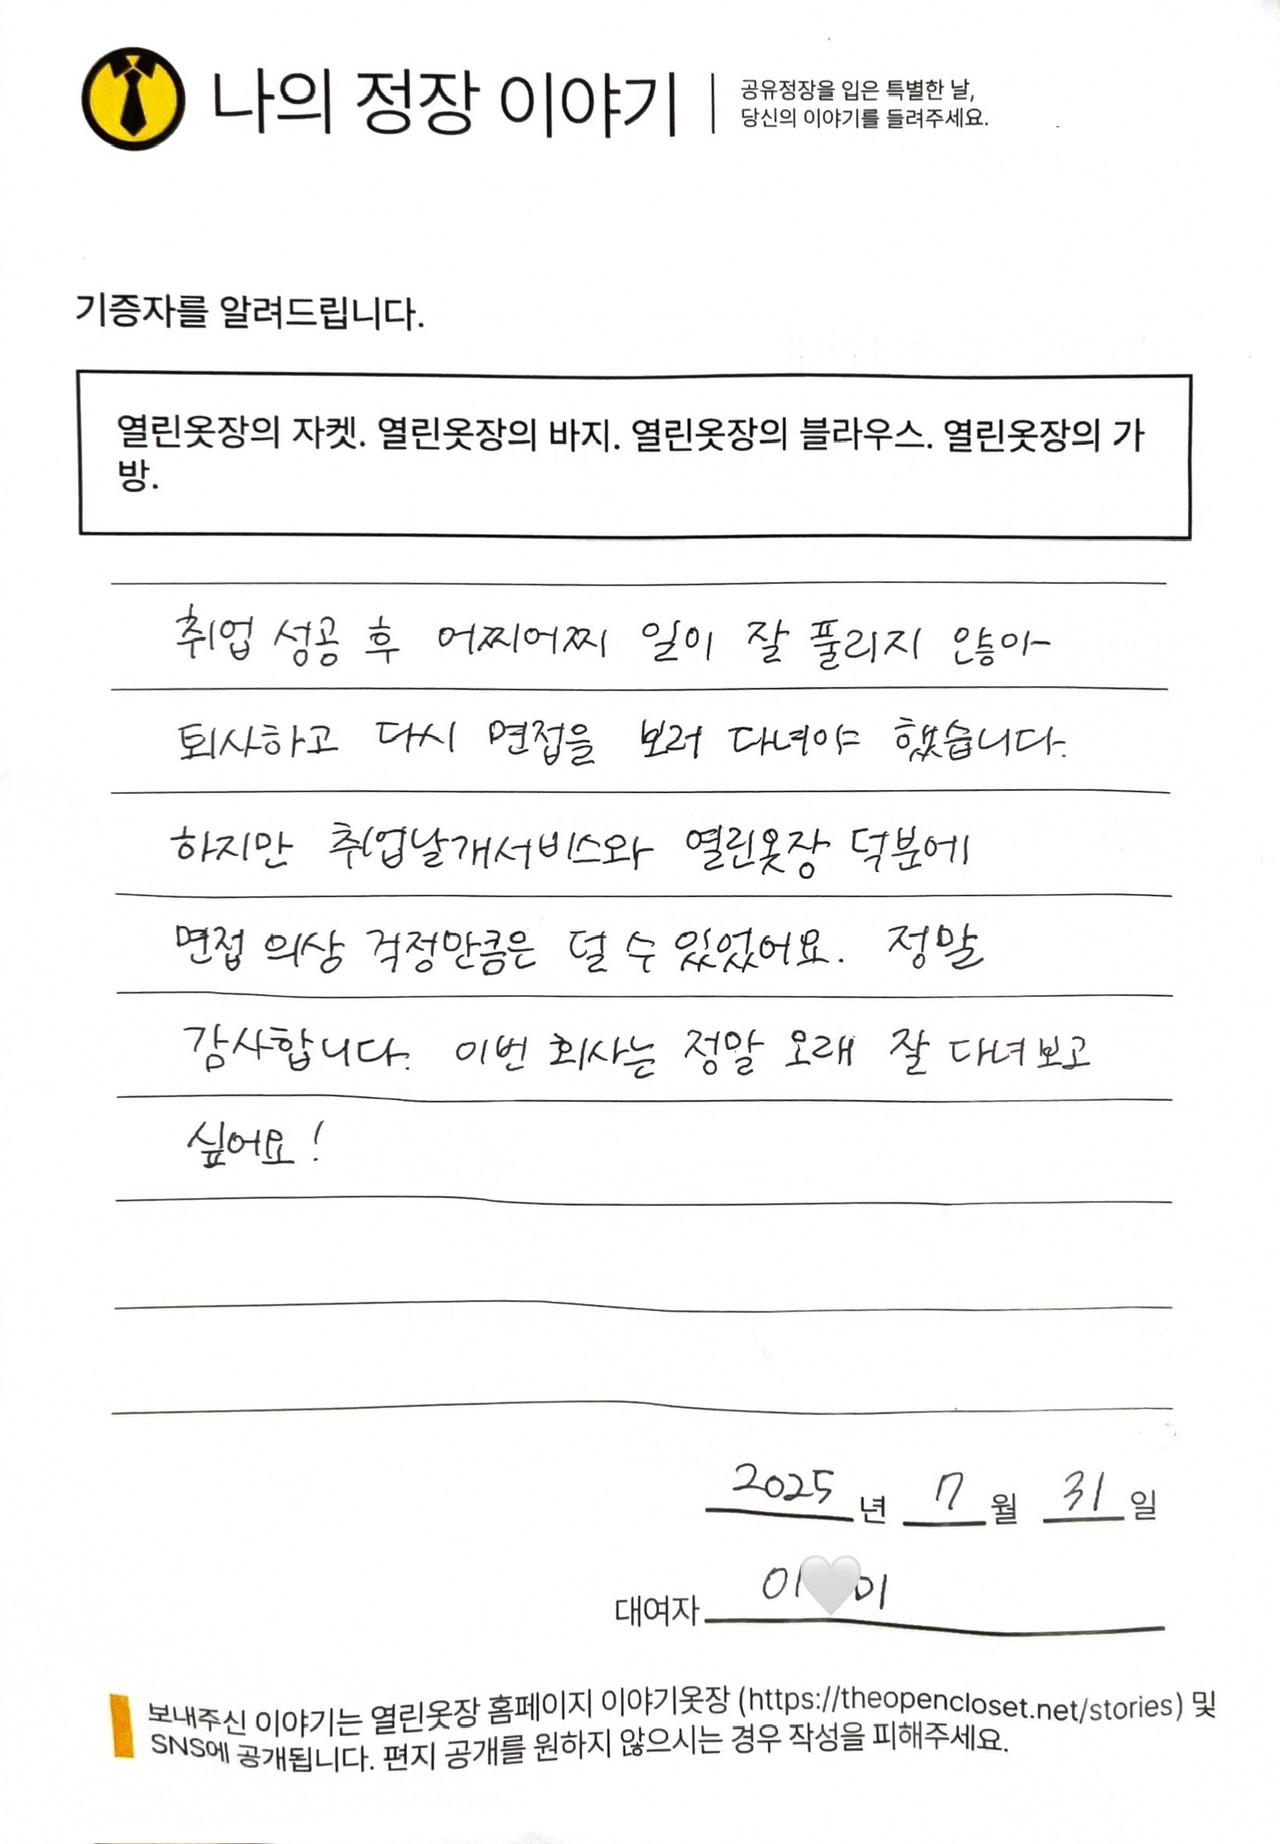 나의 정장 이야기
공유정장을 입은 특별한 날,
당신의 이야기를 들려주세요.
기증자를 알려드립니다.
열린옷장의 자켓. 열린옷장의 바지. 열린옷장의 블라우스. 열린옷장의 가
방.
취업 성공 후 어찌어찌 일이 잘 풀리지 않아
퇴사하고 다시 면접을 보러 다녀야 했습니다.
하지만 취업날개서비스와 열린옷장 덕분에
면접 의상 걱정만큼은 덜 수 있었어요. 정말
감사합니다. 이번 회사는 정말 오래 잘 다녀보고
싶어요!
2025년 7월 31일
대여자 이🤍이
보내주신 이야기는 열린옷장 홈페이지 이야기옷장 (https://theopencloset.net/stories) 및
SNS에 공개됩니다. 편지 공개를 원하지 않으시는 경우 작성을 피해주세요.